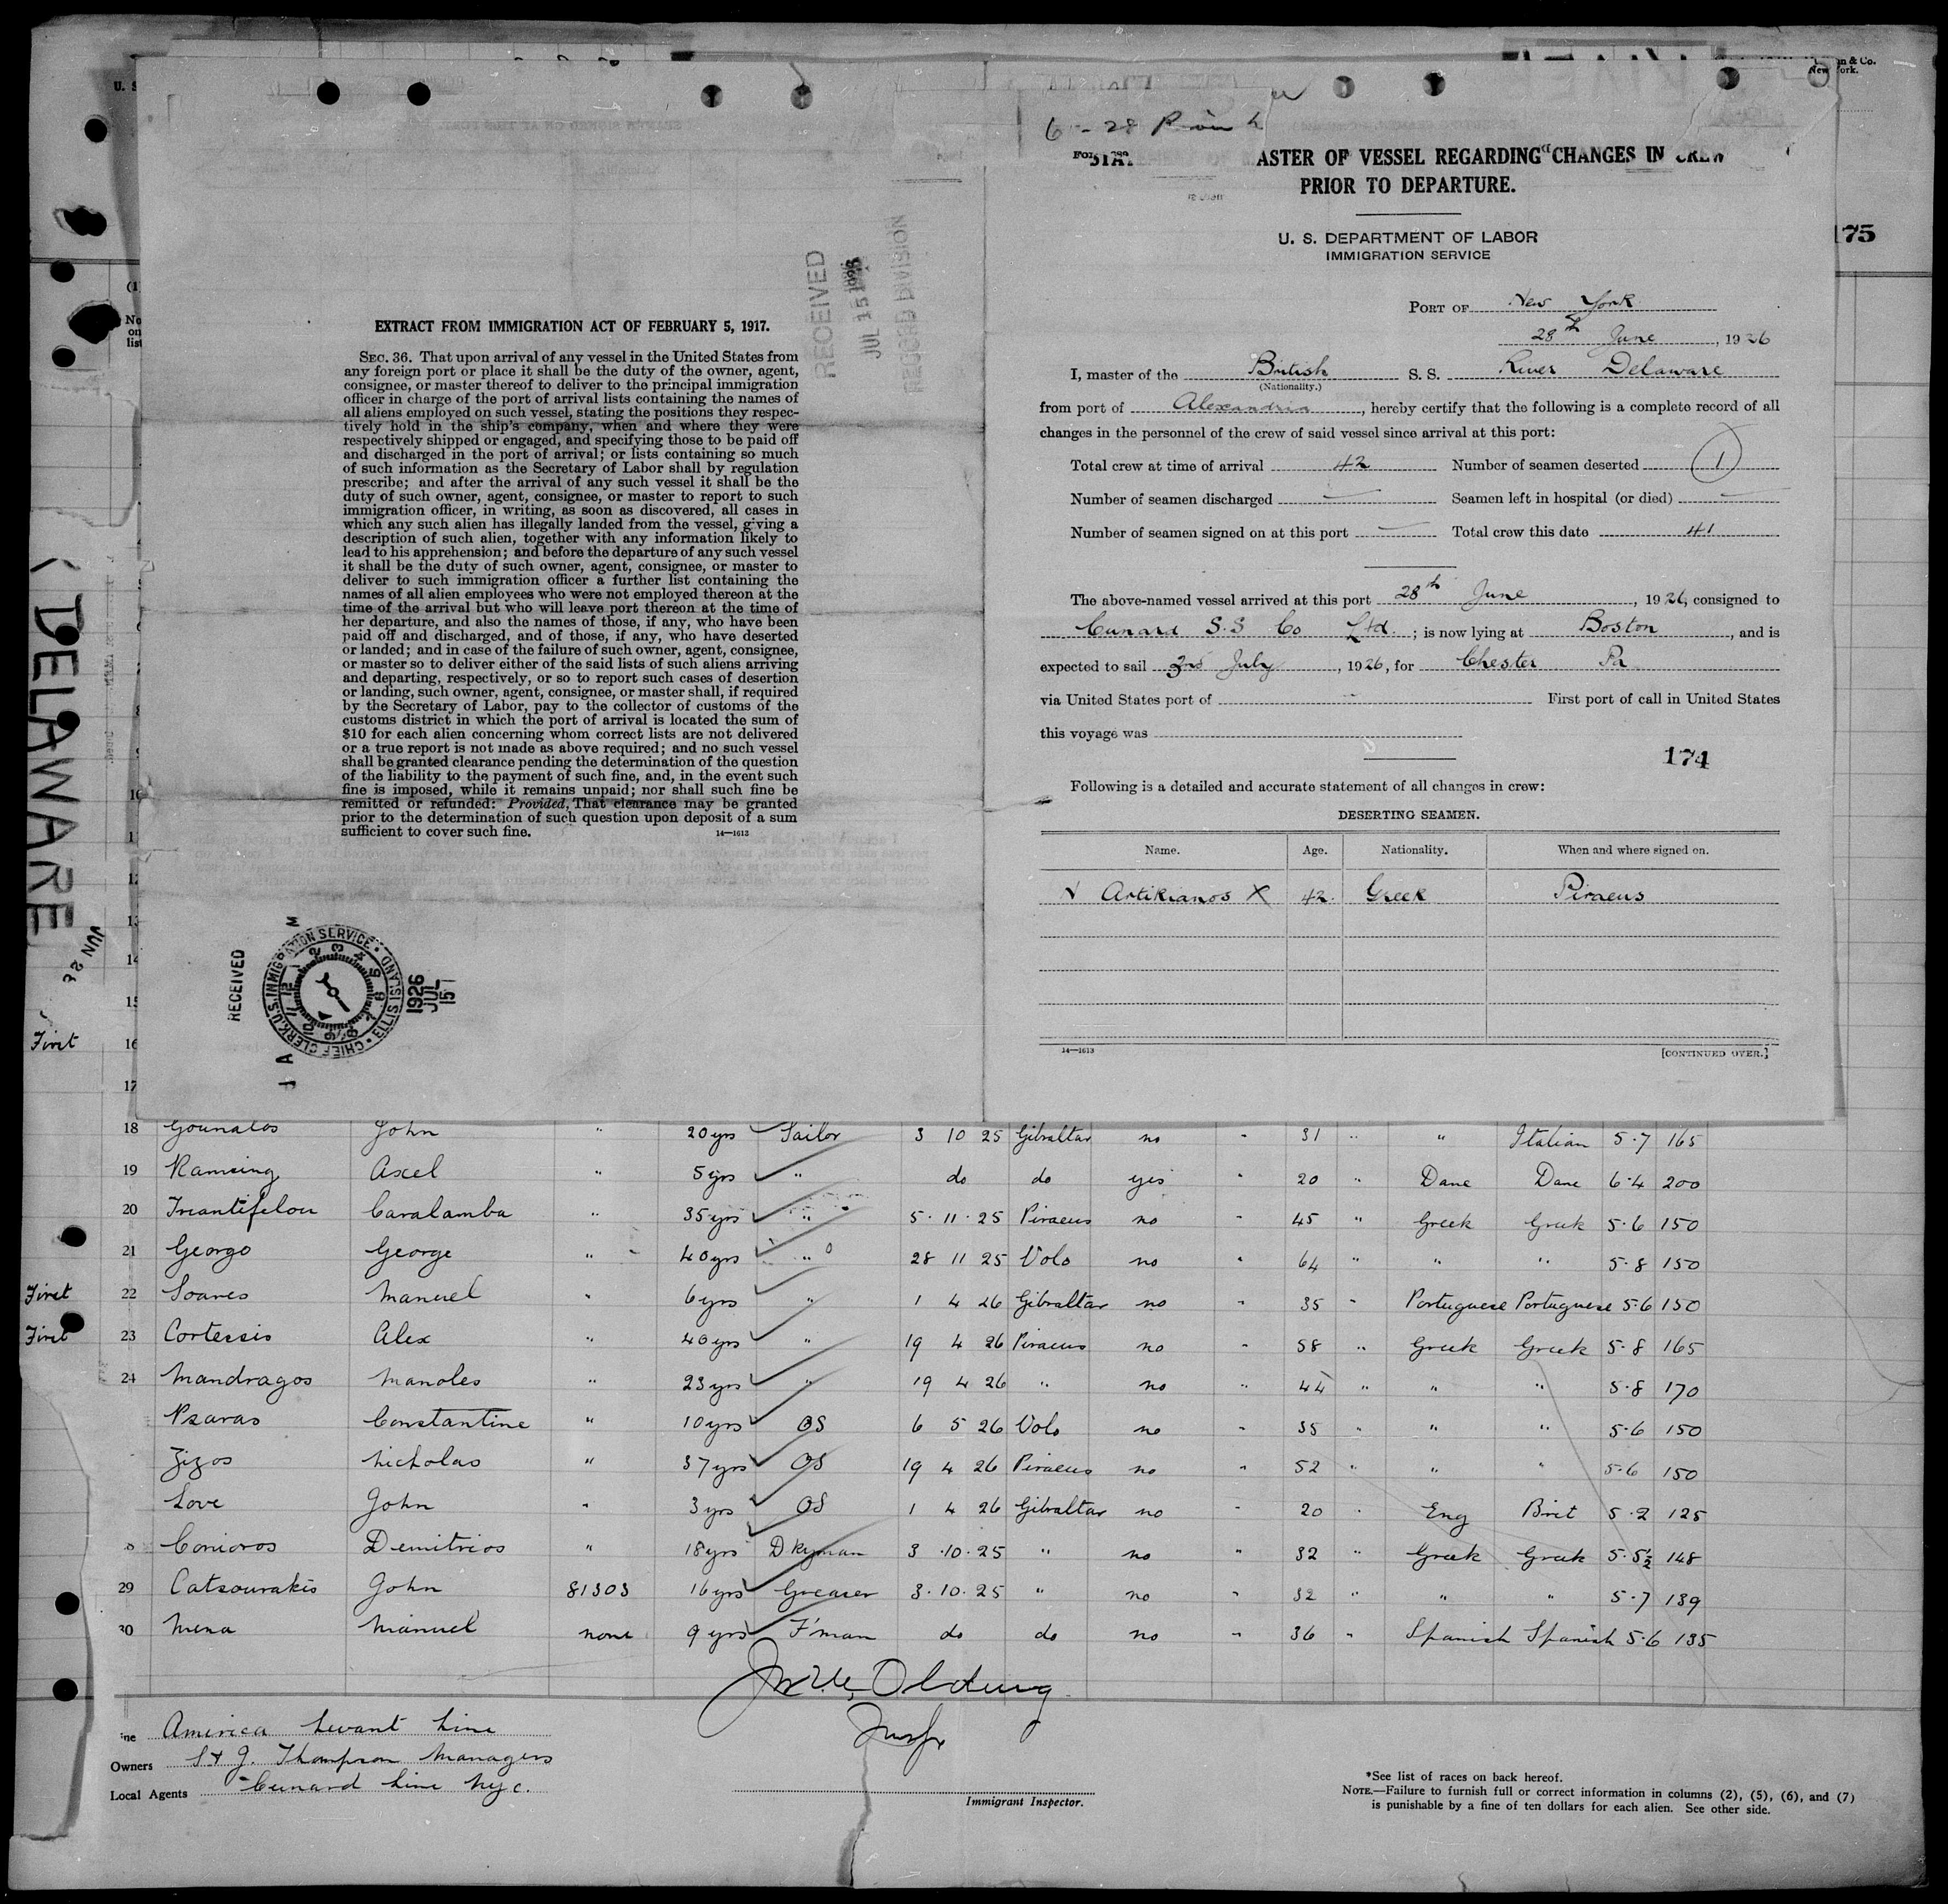 6 - 28
ASTER OF VESSEL REGARDING CHANGES IN CREW
PRIOR TO DEPARTURE.
U. S. DEPARTMENT OF LABOR
IMMIGRATION SERVICE
PORT OF New York
28th June, 1926
I, master of the British S. S. River Delaware
(Nationality.)
from port of Alexandria, hereby certify that the following is a complete record of all
changes in the personnel of the crew of said vessel since arrival at this port:
Total crew at time of arrival 42 Number of seamen deserted 1
Number of seamen discharged — Seamen left in hospital (or died) —
Number of seamen signed on at this port — Total crew this date 41
The above-named vessel arrived at this port 28th June, 1926, consigned to
Cunard S.S Co Ltd.; is now lying at Boston, and is
expected to sail 3rd July, 1926, for Chester Pa
via United States port of - First port of call in United States
this voyage was
174
Following is a detailed and accurate statement of all changes in crew:
DESERTING SEAMEN.
Name. Age. Nationality. When and where signed on.
√ Artikianos X 42. Greek Piraeus
14—1613 [CONTINUED OVER.]
EXTRACT FROM IMMIGRATION ACT OF FEBRUARY 5, 1917.
SEC. 36. That upon arrival of any vessel in the United States from
any foreign port or place it shall be the duty of the owner, agent,
consignee, or master thereof to deliver to the principal immigration
officer in charge of the port of arrival lists containing the names of
all aliens employed on such vessel, stating the positions they respec-
tively hold in the ship's company, when and where they were
respectively shipped or engaged, and specifying those to be paid off
and discharged in the port of arrival; or lists containing so much
of such information as the Secretary of Labor shall by regulation
prescribe; and after the arrival of any such vessel it shall be the
duty of such owner, agent, consignee, or master to report to such
immigration officer, in writing, as soon as discovered, all cases in
which any such alien has illegally landed from the vessel, giving a
description of such alien, together with any information likely to
lead to his apprehension; and before the departure of any such vessel
it shall be the duty of such owner, agent, consignee, or master to
deliver to such immigration officer a further list containing the
names of all alien employees who were not employed thereon at the
time of the arrival but who will leave port thereon at the time of
her departure, and also the names of those, if any, who have been
paid off and discharged, and of those, if any, who have deserted
or landed; and in case of the failure of such owner, agent, consignee,
or master so to deliver either of the said lists of such aliens arriving
and departing, respectively, or so to report such cases of desertion
or landing, such owner, agent, consignee, or master shall, if required
by the Secretary of Labor, pay to the collector of customs of the
customs district in which the port of arrival is located the sum of
$10 for each alien concerning whom correct lists are not delivered
or a true report is not made as above required; and no such vessel
shall be granted clearance pending the determination of the question
of the liability to the payment of such fine, and, in the event such
fine is imposed, while it remains unpaid; nor shall such fine be
remitted or refunded: Provided, That clearance may be granted
prior to the determination of such question upon deposit of a sum
sufficient to cover such fine. 14—1613
RECEIVED
JUL 15 1926
RECORD DIVISION
RECEIVED
CHIEF CLERK, U.S. IMMIGRATION SERVICE ELLIS ISLAND
1926 JUL 15
175
DELAWARE
JUN 28
First 16
17
18 Gounatos John " 20 yrs Sailor 3 10 25 Gibraltar no " 31 " " Italian 5.7 165
19 Ramsing Axel " 5 yrs " do do yes " 20 " Dane Dane 6.4 200
20 Triantifelou Caralamba " 35 yrs " 5.11.25 Piraeus no " 45 " Greek Greek 5.6 150
21 Georgo George " 40 yrs " 28 11 25 Volo no " 64 " " " 5.8 150
First 22 Soares Manuel " 6 yrs " 1 4 26 Gibraltar no " 35 " Portuguese Portuguese 5.6 150
First 23 Cortessis Alex " 40 yrs " 19 4 26 Piraeus no " 58 " Greek Greek 5.8 165
24 Mandragos Manoles " 23 yrs " 19 4 26 " no " 44 " " " 5.8 170
Psaras Constantine " 10 yrs OS 6 5 26 Volo no " 35 " " " 5.6 150
Zizos Nicholas " 37 yrs OS 19 4 26 Piraeus no " 52 " " " 5.6 150
Love John " 3 yrs OS 1 4 26 Gibraltar no " 20 " Eng Brit 5.2 125
8 Conioros Demitrios " 18 yrs Dkyman 3.10.25 " no " 32 " Greek Greek 5.5½ 148
29 Catsourakis John 81303 16 yrs Greaser 3.10.25 " no " 32 " " " 5.7 139
30 Mena Manuel none 9 yrs F'man do do no " 36 " Spanish Spanish 5.6 135
America Levant Line
Owners S & J. Thompson Managers
Local Agents Cunard Line Nyc.
Immigrant Inspector.
*See list of races on back hereof.
NOTE.—Failure to furnish full or correct information in columns (2), (5), (6), and (7)
is punishable by a fine of ten dollars for each alien. See other side.